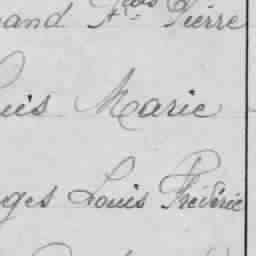 and Fçois Pierre
uis Marie
ges Louis Frédéric